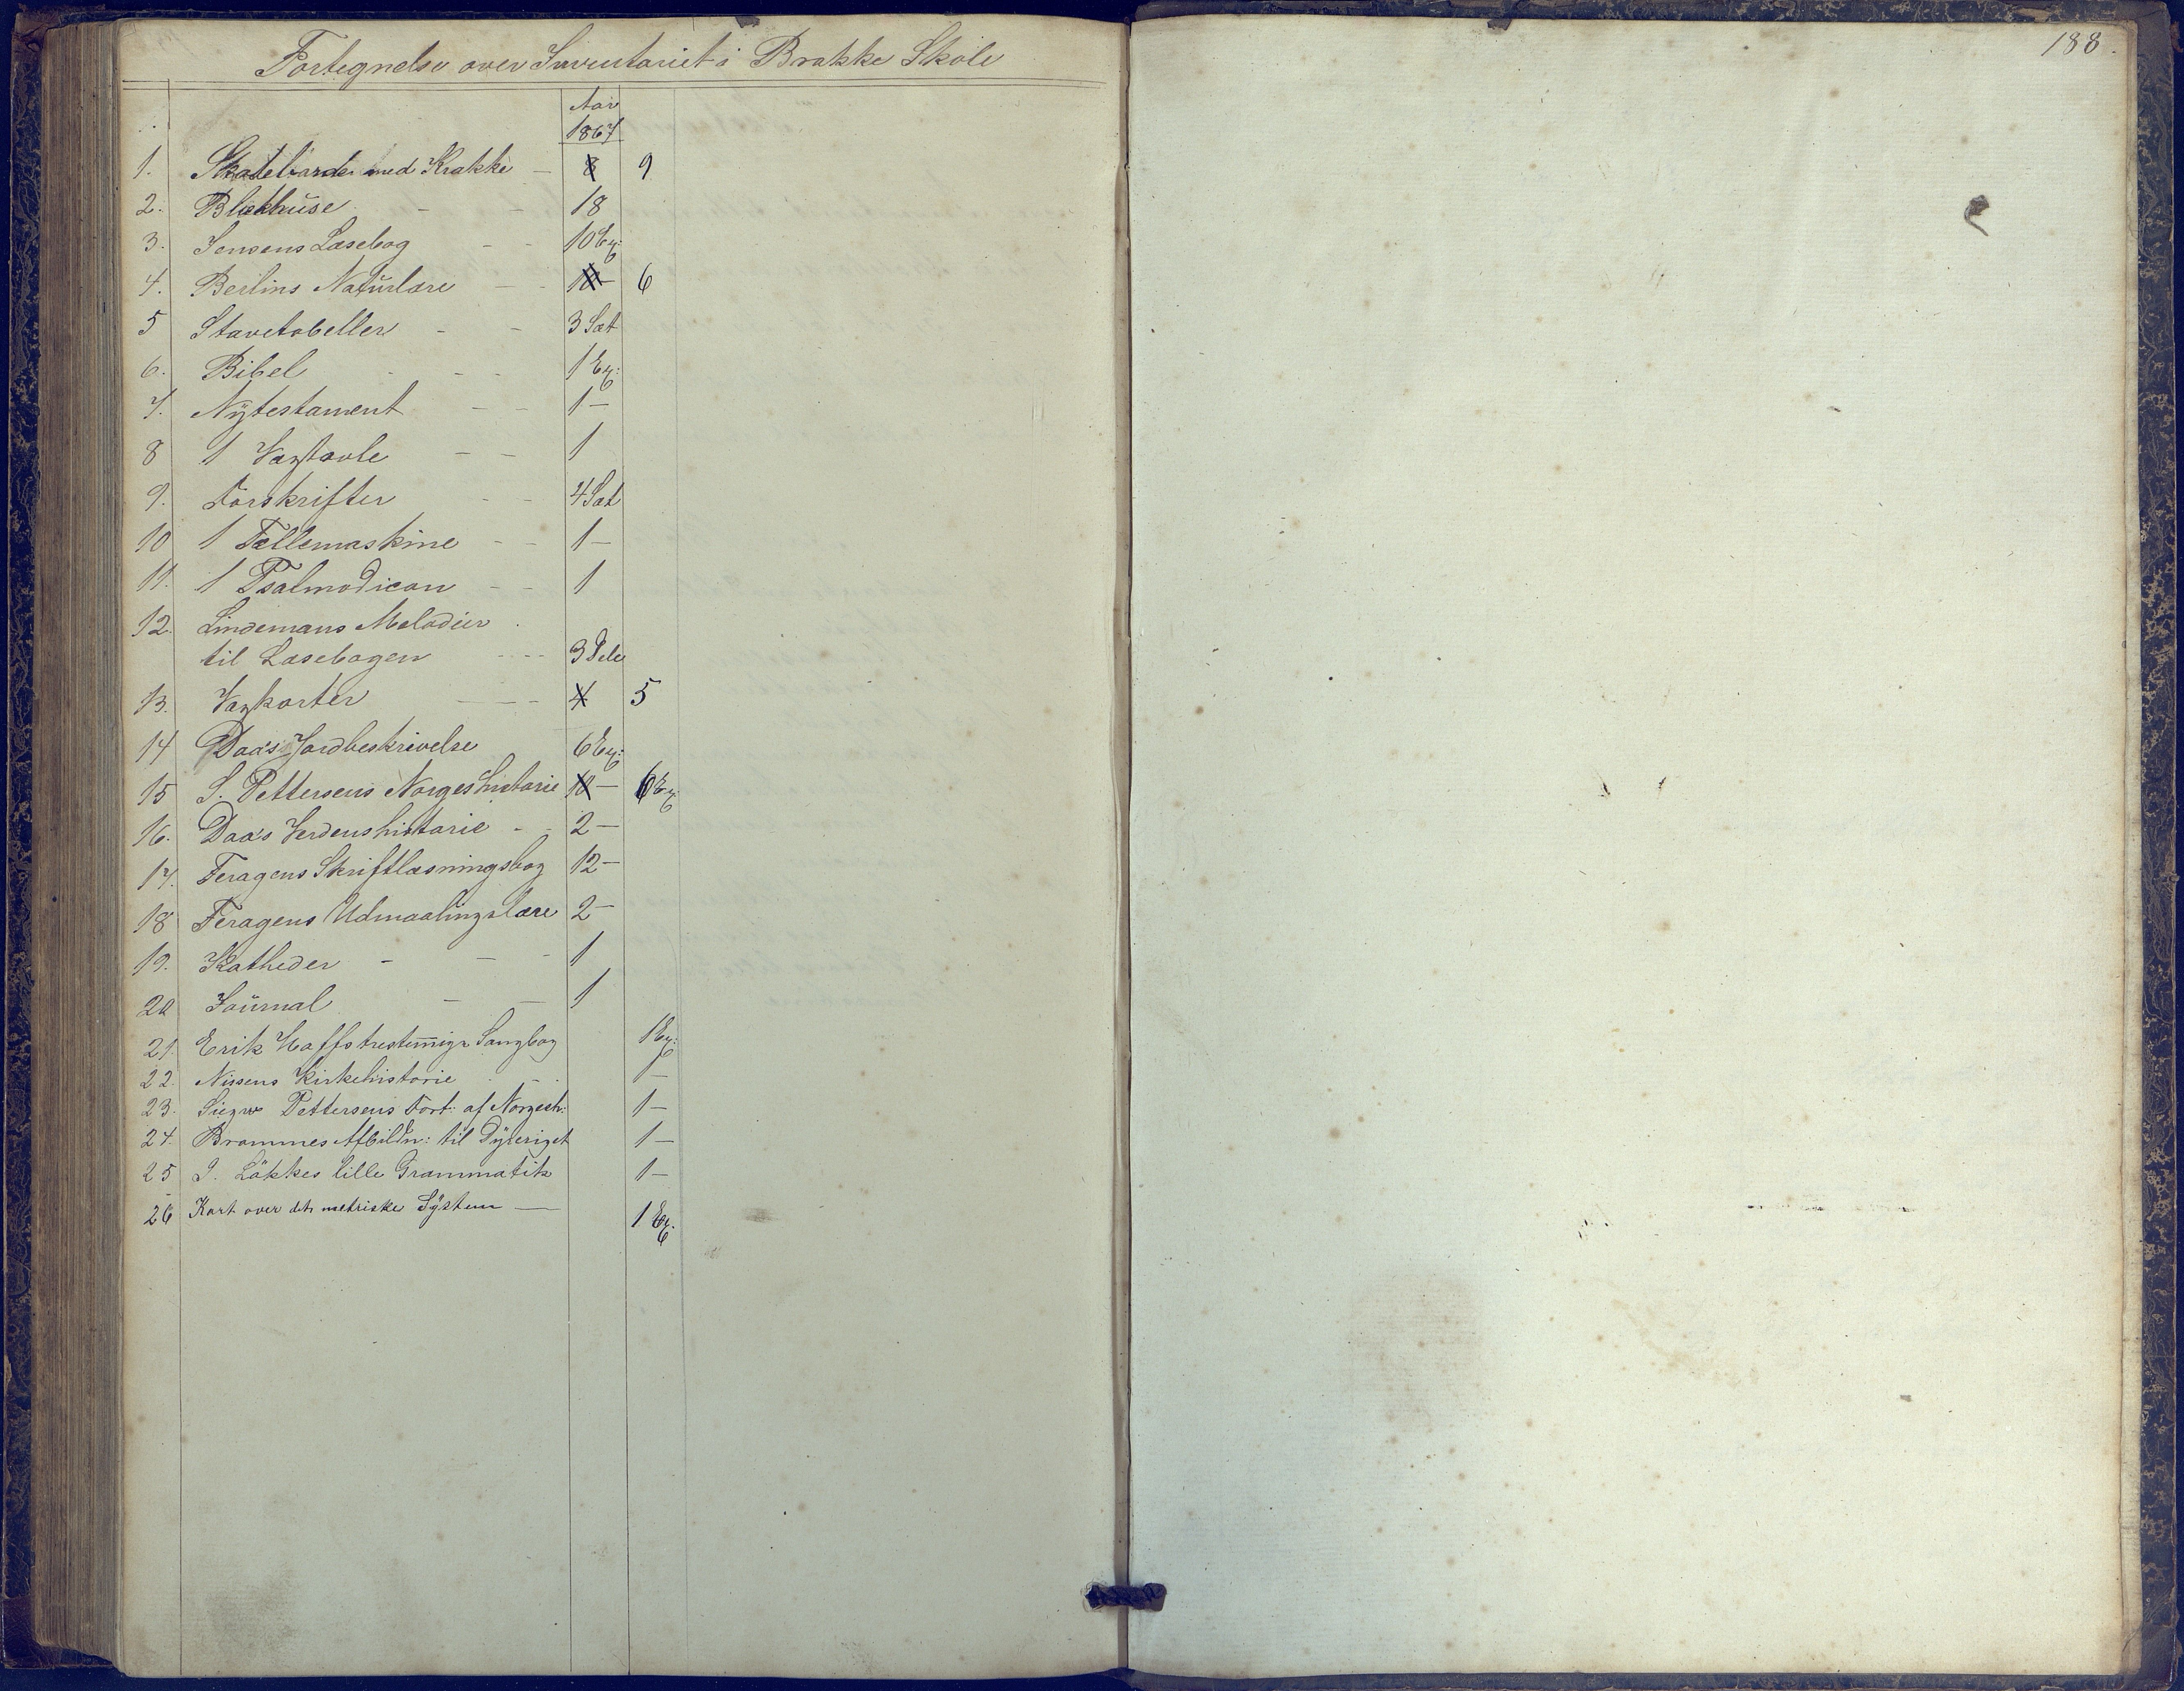 188.
Fortegnelse over Inventariet i Brække Skole
Aar
1867
1. Skoleborde med Krakke — 8 9
2. Blækhuse - - 18
3. Jensens Læsebog - - 10 Ex:
4. Berlins Naturlære - - 10 — 6
5 Stavetabeller - - 3 Sæt
6. Bibel - - - 1 Ex:
7. Nÿtestament - - 1 —
8 1 Vægtavle - - 1
9. Forskrifter - - 4 Sæt
10 1 Tællemaskine - - 1 —
11. 1 Psalmodicon - - 1
12. Lindemans Melodier
til Læsebogen - - - 3 Dele
13. Vægkorter - - - 4 5
14 Daa's Jordbeskrivelse 6 Ex:
15 S. Pettersens Norgeshistorie 10 — 6 Ex:
16. Daa's Verdenshistorie - - 2 —
17. Feragens Skriftlæsningsbog 12 —
18 Feragens Udmaalingslære 2 —
19. Katheder - - - 1
20 Journal - - 1
21. Erik Hoffs trestemmige Sangbog 1 Ex:
22. Nissens Kirkehistorie - - 1 —
23. Siegw Pettersens Fort: af Norgesh: 1 —
24. Brammes Afbildn: til Dÿreriget 1 —
25 J. Lökkes lille Grammatik 1 —
26 Kart over det metriske Sÿstem — 1 Ex.